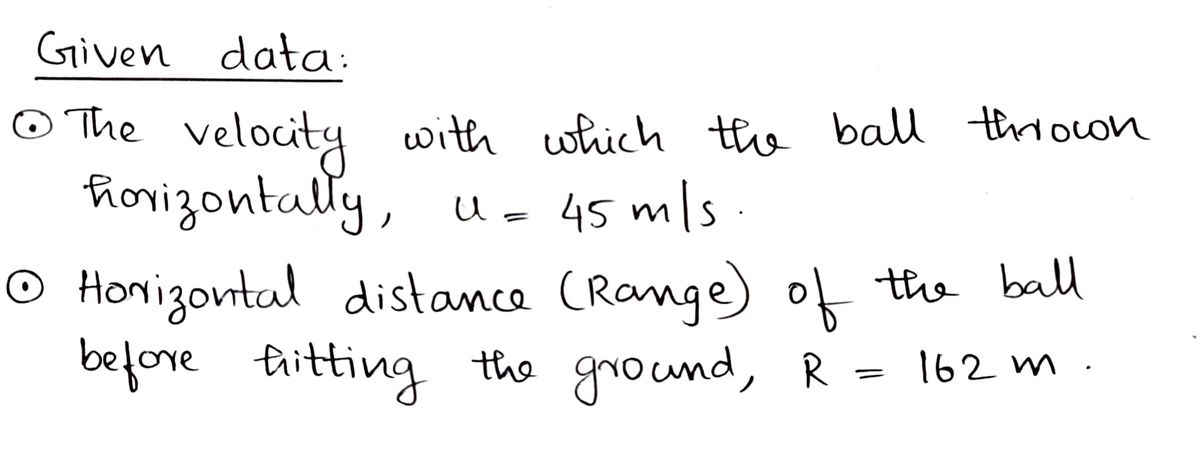 Given data:
⊙ The velocity with which the ball thrown
horizontally, u = 45 m/s.
⊙ Horizontal distance (Range) of the ball
before hitting the ground, R = 162 m.